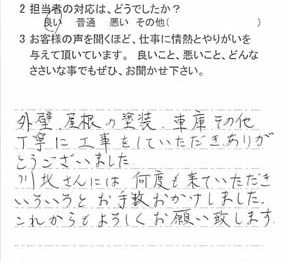 2 担当者の対応は、どうでしたか?
良い 普通 悪い その他( )
3 お客様の声を聞くほど、仕事に情熱とやりがいを
与えて頂いています。良いこと、悪いこと、どんな
ささいな事でもぜひ、お聞かせ下さい。
外壁.屋根の塗装.車庫その他
丁寧に工事をしていただき、ありが
とうございました
川北さんには何度も来ていただき
いろいろとお手数おかけしました.
これからもよろしくお願い致します.